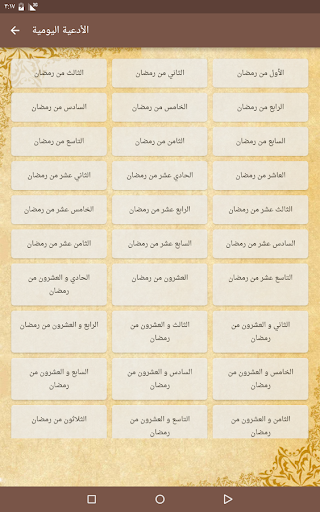 ٣:١٧
الأدعية اليومية
الأول من رمضان
الثاني من رمضان
الثالث من رمضان
الرابع من رمضان
الخامس من رمضان
السادس من رمضان
السابع من رمضان
الثامن من رمضان
التاسع من رمضان
العاشر من رمضان
الحادي عشر من رمضان
الثاني عشر من رمضان
الثالث عشر من رمضان
الرابع عشر من رمضان
الخامس عشر من رمضان
السادس عشر من رمضان
السابع عشر من رمضان
الثامن عشر من رمضان
التاسع عشر من رمضان
العشرون من رمضان
الحادي و العشرون من
رمضان
الثاني و العشرون من
رمضان
الثالث و العشرون من
رمضان
الرابع و العشرون من رمضان
الخامس و العشرون من
رمضان
السادس و العشرون من
رمضان
السابع و العشرون من
رمضان
الثامن و العشرون من
رمضان
التاسع و العشرون من
رمضان
الثلاثون من رمضان